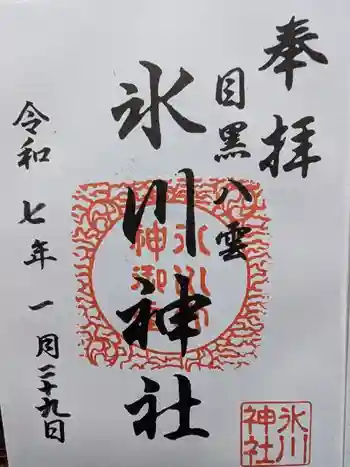 奉拝
目黒八雲
氷川神社
令和七年一月二十九日
氷川神社